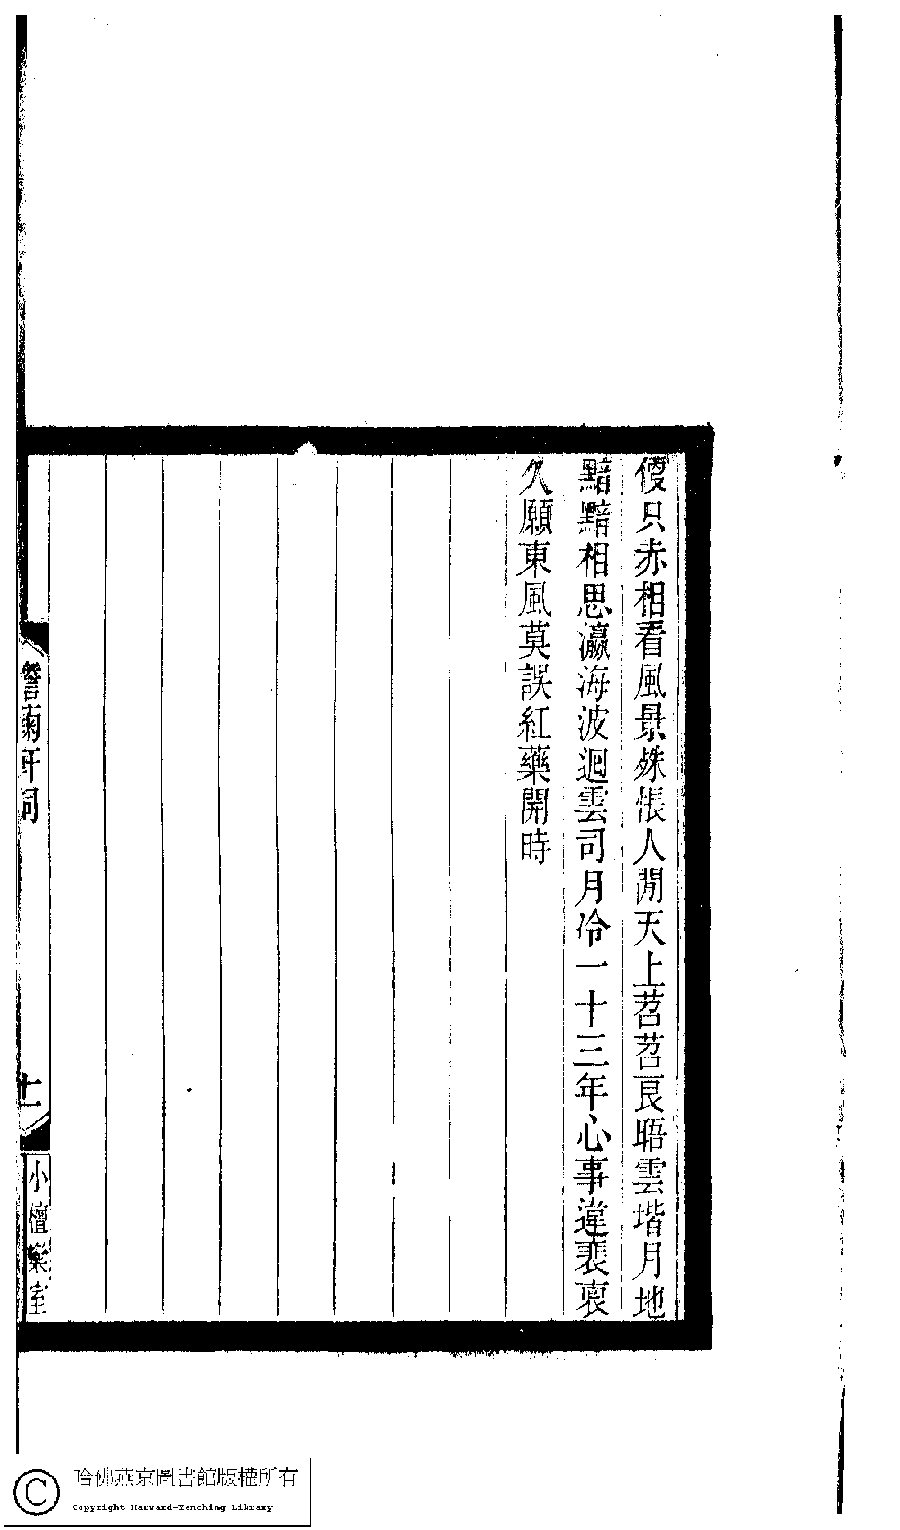 傻只赤相看風景殊悵人閒天上苕苕良晤雲堦月地
黯黯相思瀛海波迴雲司月冷一十三年心事違裴褱
久願東風莫誤紅藥開時
詞
十一
小檀欒室
哈佛燕京圖書館版權所有
Copyright Harvard-Yenching Library